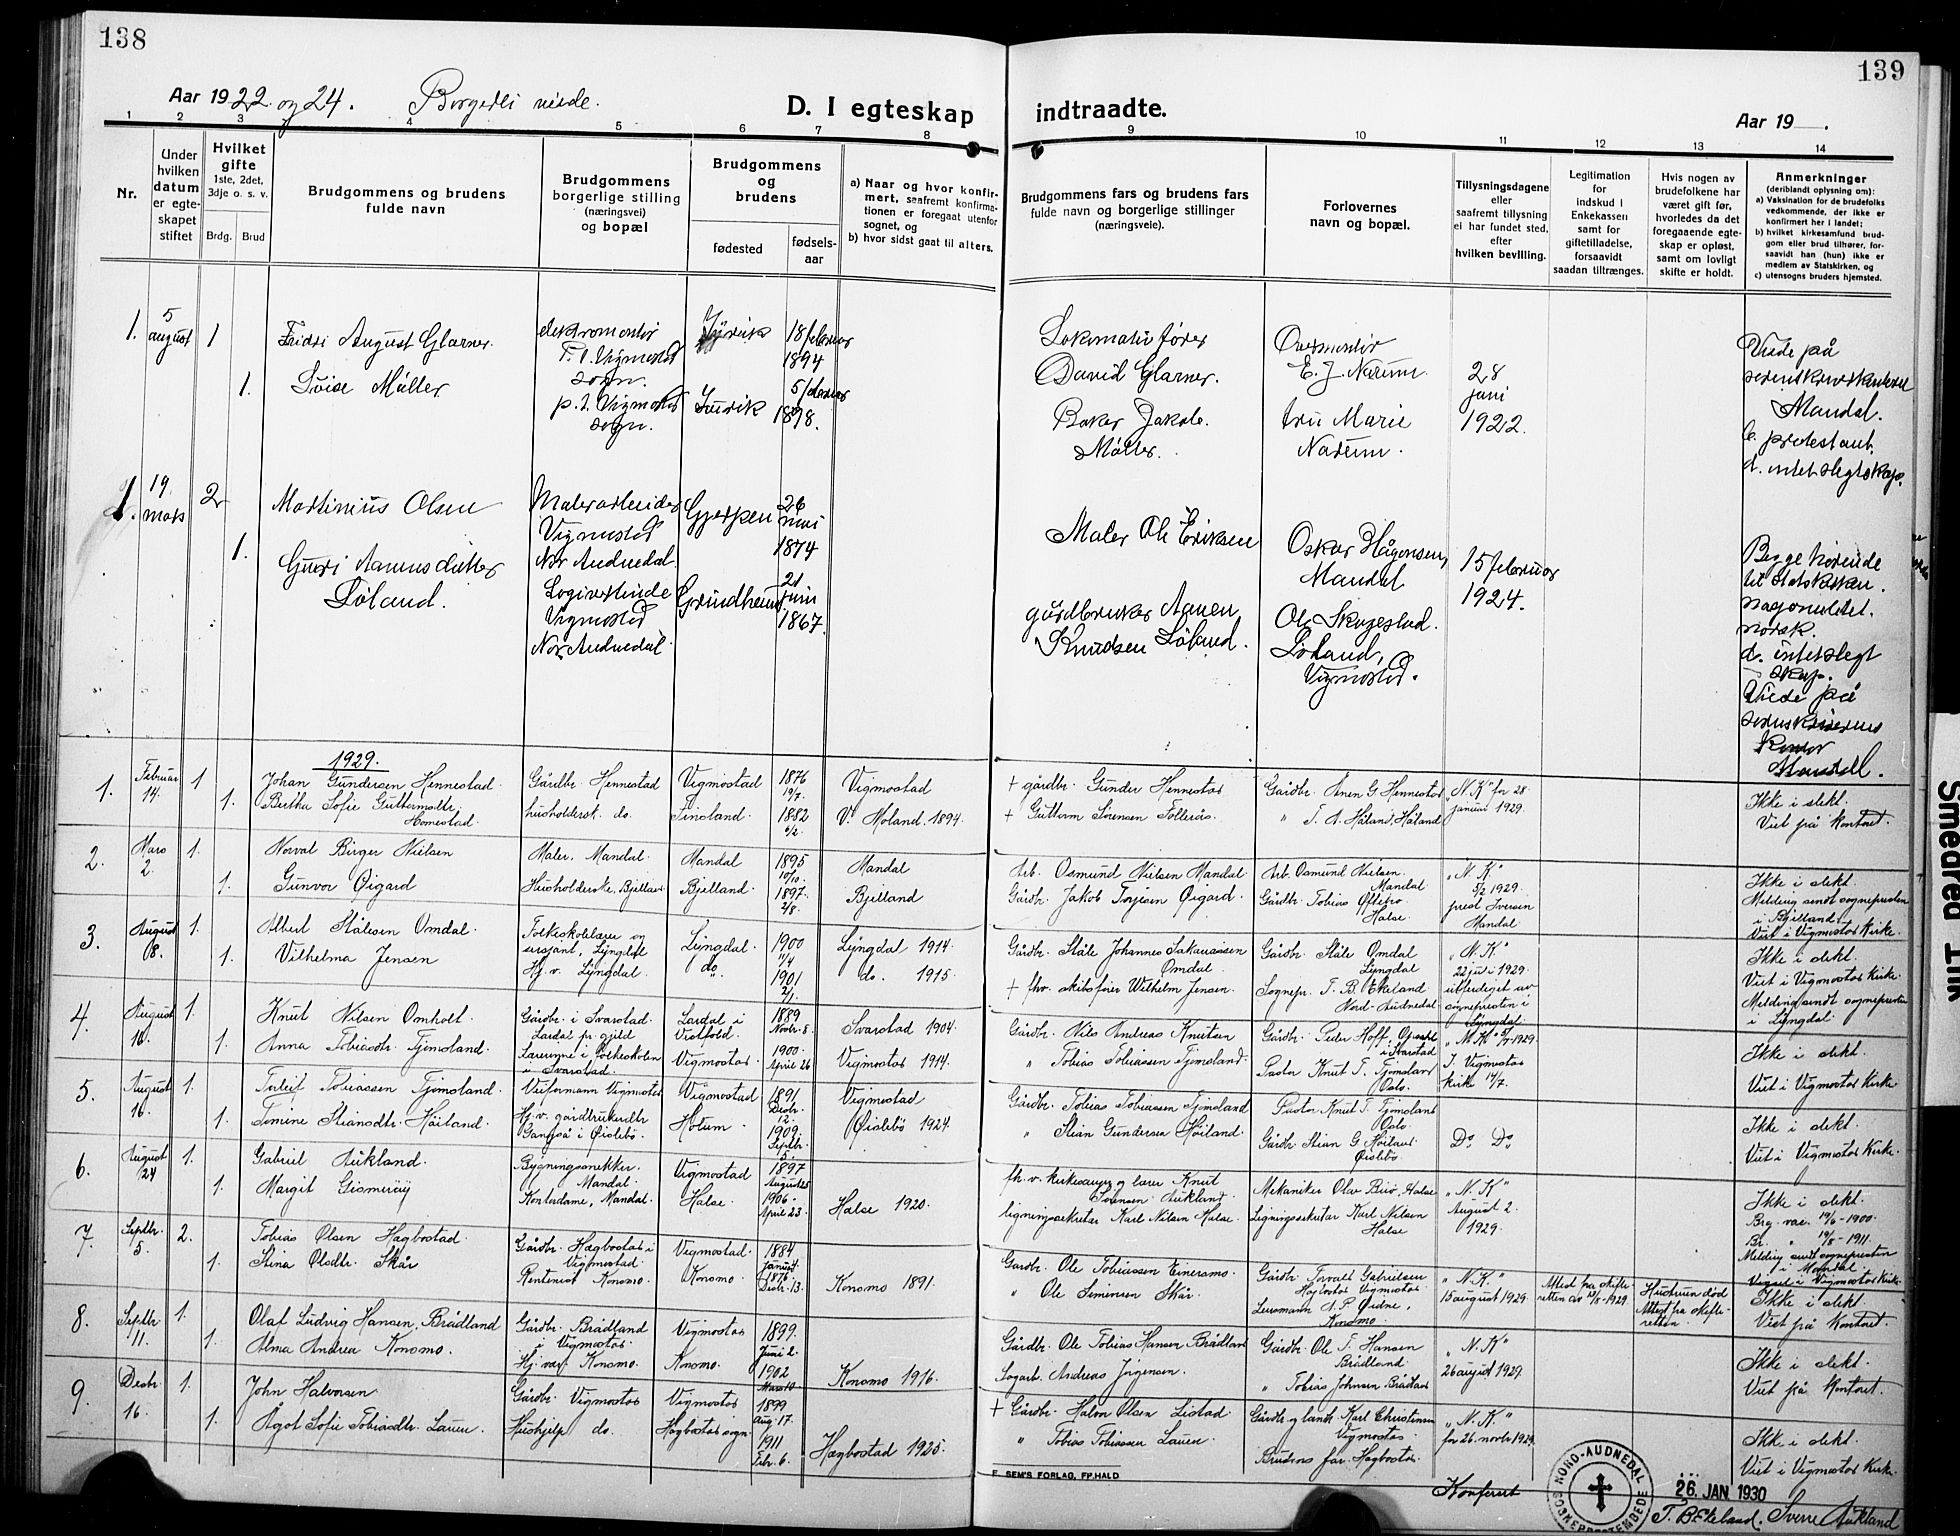 138
139
Aar 1922 og 24. Borgerli viede.
D. I egteskap indtraadte.
Aar 19 .
1 2 3 4 5 6 7 8 9 10 11 12 13 14
Nr.
Under hvilken datum er egteskapet stiftet
Hvilket gifte 1ste, 2det, 3dje o. s. v.
Brdg. Brud
Brudgommens og brudens fulde navn
Brudgommens borgerlige stilling (næringsvei) og bopæl
Brudgommens og brudens
fødested
fødsels-aar
a) Naar og hvor konfirmert, saafremt konfirmationen er foregaat utenfor sognet, og
b) hvor sidst gaat til alters.
Brudgommens fars og brudens fars fulde navn og borgerlige stillinger (næringsveie).
Forlovernes navn og bopæl.
Tillysningsdagene eller saafremt tillysning ei har fundet sted, efter hvilken bevilling.
Legitimation for indskud i Enkekassen samt for giftetilladelse, forsaavidt saadan tiltrænges.
Hvis nogen av brudefolkene har været gift før, hvorledes da det foregaaende egteskap er opløst, samt om lovligt skifte er holdt.
Anmerkninger (deriblandt oplysning om):
a) Vaksination for de brudefolks vedkommende, der ikke er konfirmert her i landet;
b) hvilket kirkesamfund brudgom eller brud tilhører, forsaavidt han (hun) ikke er medlem av Statskirken, og
c) utensogns bruders hjemsted.
1. 5 august 1 Fridri August Glarner. elektromontør Vigmostad sogn. 18 februar 1894
Lokomotivfører David Glarner. Overmontør E. J. Narum
1. Luise Müller p. t. Vigmostad sogn. 5 februar 1898.
Baker Jakob Müller. fru Marie Narum.
28 juni 1922.
Viede på sorenskriverkontoret Mandal.
protestant.
d. intet slegtskap.
1. 19. mars 2 Martinius Olsen Malerarbeider Vigmostad Nor Audnedal. Gjerpen 26 mai 1874
Maler Ole Eriksen Oskar Hågensen, Mandal
1. Guri Aanensdatter Løland. Logivertinde Vigmostad Nor Audnedal. Grindheim 21 juni 1867.
gårdbruker Aanen Knudsen Løland. Ole Skogestad. Løland, Vigmostad.
15 februar 1924.
Begge hørende til Statskirken. nasjonalitet. norsk. d. intet slegtskap. Viede på sorenskriverens kontor Mandal.
1929.
1. Februar 14. 1 Johan Gundersen Hennestad. Gårdbr. Hennestad Vigmostad 1876 19/7. Vigmostad
1. Bertha Sofie Guttormsdtr. Homestad. husholdersk. do. Finsland. 1882 V. Moland. 1894.
+ gårdbr. Gunder Hennestad Gårdbr. Anen G Hennestad
+ Guttorm Sørensen Follerås. " T. A. Håland, Håland
"N. K" for 28 januar 1929.
Ikke i slekt. Viet på kontoret.
2. Mars 2. 1. Norval Birger Nielsen Maler. Mandal. Mandal 1895 10/10. Mandal
1. Gunvor Øigard Husholderske. Bjelland. Bjelland. 1897. 2/8. Bjelland
Arb. Osmund Nielsen Mandal Arb. Osmund Nielsen. Mandal
Gårdbr. Jakob Torjesen Øigard. Gårdbr. Tobias Øftebro Halse.
"N. K" 5/2 1929. prest Iversen Mandal
Ikke i slekt. Melding sendt sognepresten i Bjelland. Viet i Vigmostad Kirke.
3. August 8. 1. Albert Stålesen Omdal. Folkeskolelærer og sersjant, Lyngdal Lyngdal 1900 11/4 Lyngdal 1914.
1. Vilhelma Jensen Hj. v. Lyngdal. do. 1901 do. 1915.
Gårdbr. Ståle Johannes Sakariassen Omdal. Gårdbr. Ståle Omdal Lyngdal
+ fhv. skibsfører Wilhelm Jensen. Sognepr. T. B. Ekeland Nord-Audnedal
"N. K" 22 juli 1929. utferdiget av sognepresten i Lyngdal
Ikke i slekt. Viet i Vigmostad Kirke. Melding sendt sognepresten i Lyngdal.
4 August 10. 1 Knut Nilsen Omholt. Gårdbr. i Svarstad. Lardal pr.gjeld Lardal i Vestfold. 1889 Novbr. 8. Svarstad 1904.
1. Anna Tobiasdtr. Tjomsland. Lærerinne i folkeskolen i Svarstad. Vigmostad. 1900. April 26 Vigmostad 1914.
Gårdbr. Nils Andreas Knutsen Gårdbr. Peder Hoff, i Svarstad
" Tobias Tobiassen Tjomsland. Pastor Knut T. Tjomsland Oslo.
I Vigmostad kirke 14/7.
Ikke i slekt. Viet i Vigmostad Kirke.
5 August 16. 1. Torleif Tobiassen Tjomsland. Vigmostad Vigmostad 1891 Desbr. 12. Vigmostad
1. Tomine Stiansdtr. Høiland. Hj. v. gårdbrukerdtr. i Øislebø. Holum. 1909. Septbr. 5. Øislebø 1924.
Gårdbr. Tobias Tobiassen Tjomsland Pastor Knut T. Tjomsland Oslo
" Stian Gundersen Høiland. Gårdbr. Stian G Høiland Øislebø.
Do Do
Ikke i slekt. Viet i Vigmostad Kirke.
6. August 24 1. Gabriel Aukland. Bygningssnekker. Mandal. Vigmostad 1897 August 25
1. Margit Gismerøy Kontordame, Mandal. Halse. 1906. April 23. Halse 1920.
fh. v. kirkesanger og lærer Knut Sørensen Aukland. Mekaniker Olav Birø, Halse
ligningssekretær Karl Nilsen Halse. Ligningssekretær Karl Nilsen Halse
"N. K" August 2. 1929.
Ikke i slekt. Brg. vac. 19/6-1900. Br. " 19/8-1911. Melding sendt sognepresten i Mandal Viet i Vigmostad Kirke.
7. Septbr. 5. 2. Tobias Olsen Hægbostad. Gårdbr. Hægbostad i Vigmostad. Vigmostad. 1884 Januar
1. Stina Olsdtr. Skår Rentenist Konsmo. Konsmo. 1876 Desbr. 13. Konsmo 1891.
Gårdbr. Ole Tobiassen Eineramo. Gårdbr. Torvald Gabrielsen Hægbostad Vigmostad.
" Ole Simensen Skår. Lensmann A. P. Ørdne, Konsmo.
"N. K." 15 august 1929. Attest fra skifteretten av 13/8-1929 Hustruen død Attest fra skifteretten.
Ikke i slekt. Viet på kontoret.
8. Septbr. 11. 1. Olaf Ludvig Hansen, Brådland Gårdbr. Brådland i Vigmostad. Vigmostad 1899. Juni 2.
1. Alma Andrea Konsmo. Hj. vær. Konsmo. Konsmo. 1902 Mars 10 Konsmo 1916.
Gårdbr. Ole Tobias Hansen Brådland Gårdbr. Ole T. Hansen Brådland
Sagarb. Andreas Jørgensen. " Tobias Johnsen Brådland
"N. K" 26 august 1929.
Ikke i slekt. Viet på kontoret.
9 Desbr. 16. 1. John Halvorsen Gårdbr. Vigmostad Vigmostad 1899 Aug. 17.
1. Ågot Sofie Tobiasdtr. Lauen. Hushjelp do. Hægbostad sogn. 1911 Febr. 6. Hægbostad 1925.
+ Gårdbr. Halvor Olsen Listad Gårdbr. og landh. Karl Christensen Vigmostad.
" Tobias Tobiassen Lauen. Brudens far Hægbostad.
"N. K." for 26. novbr 1929.
Ikke i slekt. Viet i Vigmostad Kirke.
E. SEM'S FORLAG, FR.HALD
Konferert
NORD-AUDNEDAL SOGNEPRESTEMBEDE
26. JAN 1930
T. B. Ekeland. Sverre Aukland
Smedrød Ink